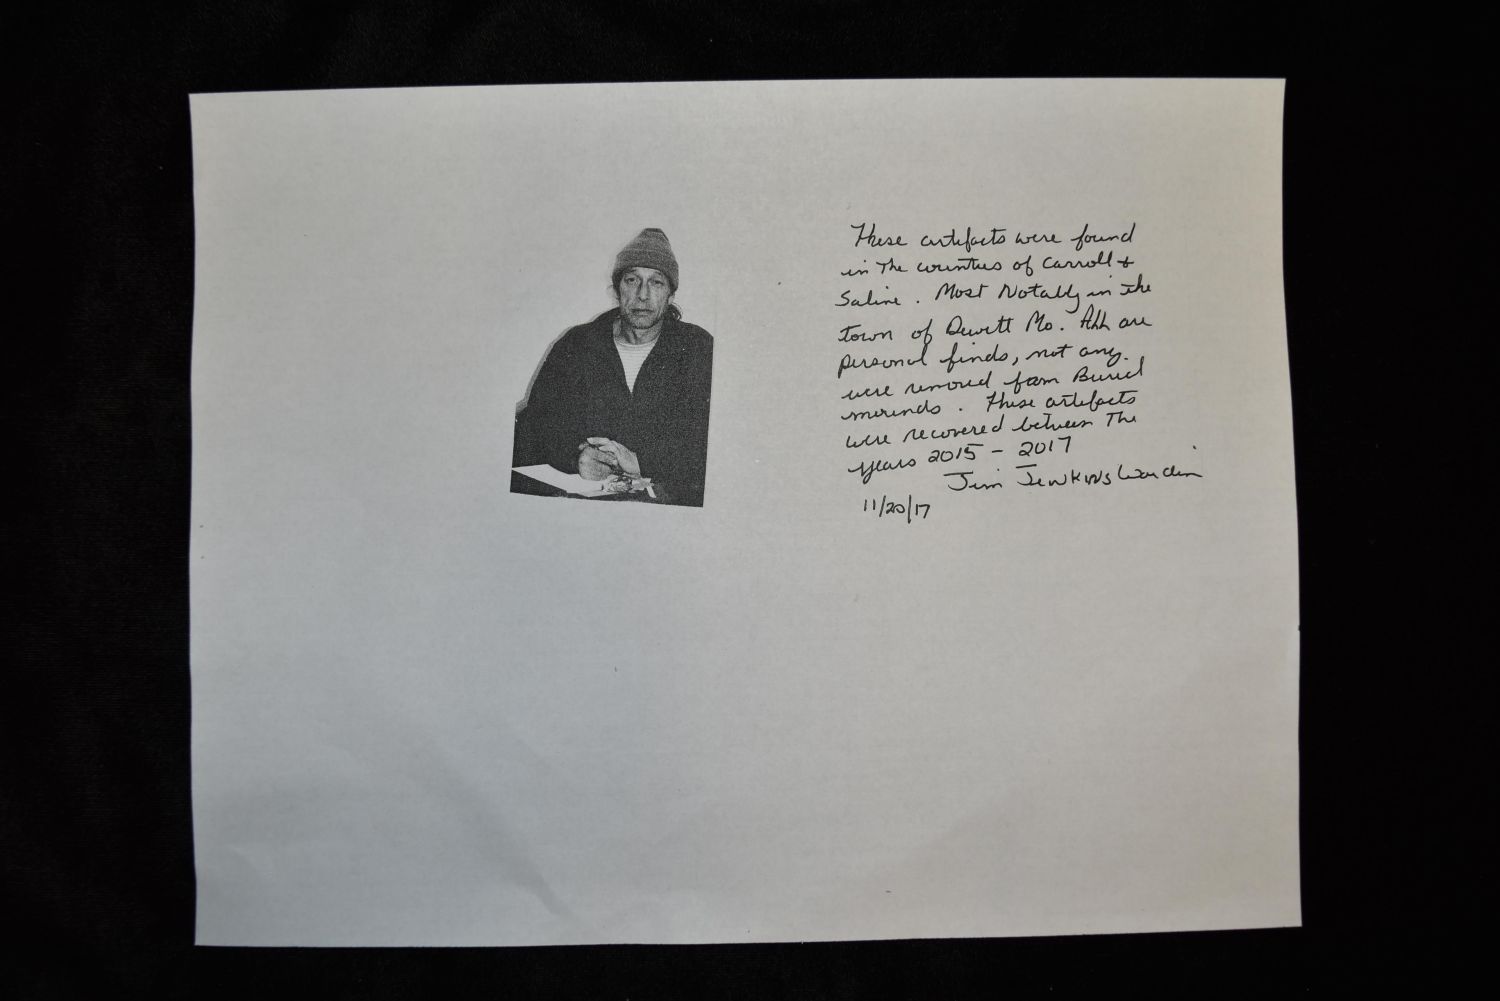 These artefacts were found
in The counties of Carroll &
Saline. Most Notably in the
town of Dewitt Mo. All are
personal finds, not any
were removed from Buried
mounds. These artefacts
were recovered between The
years 2015 - 2017
Jim Jenkins
11/20/17